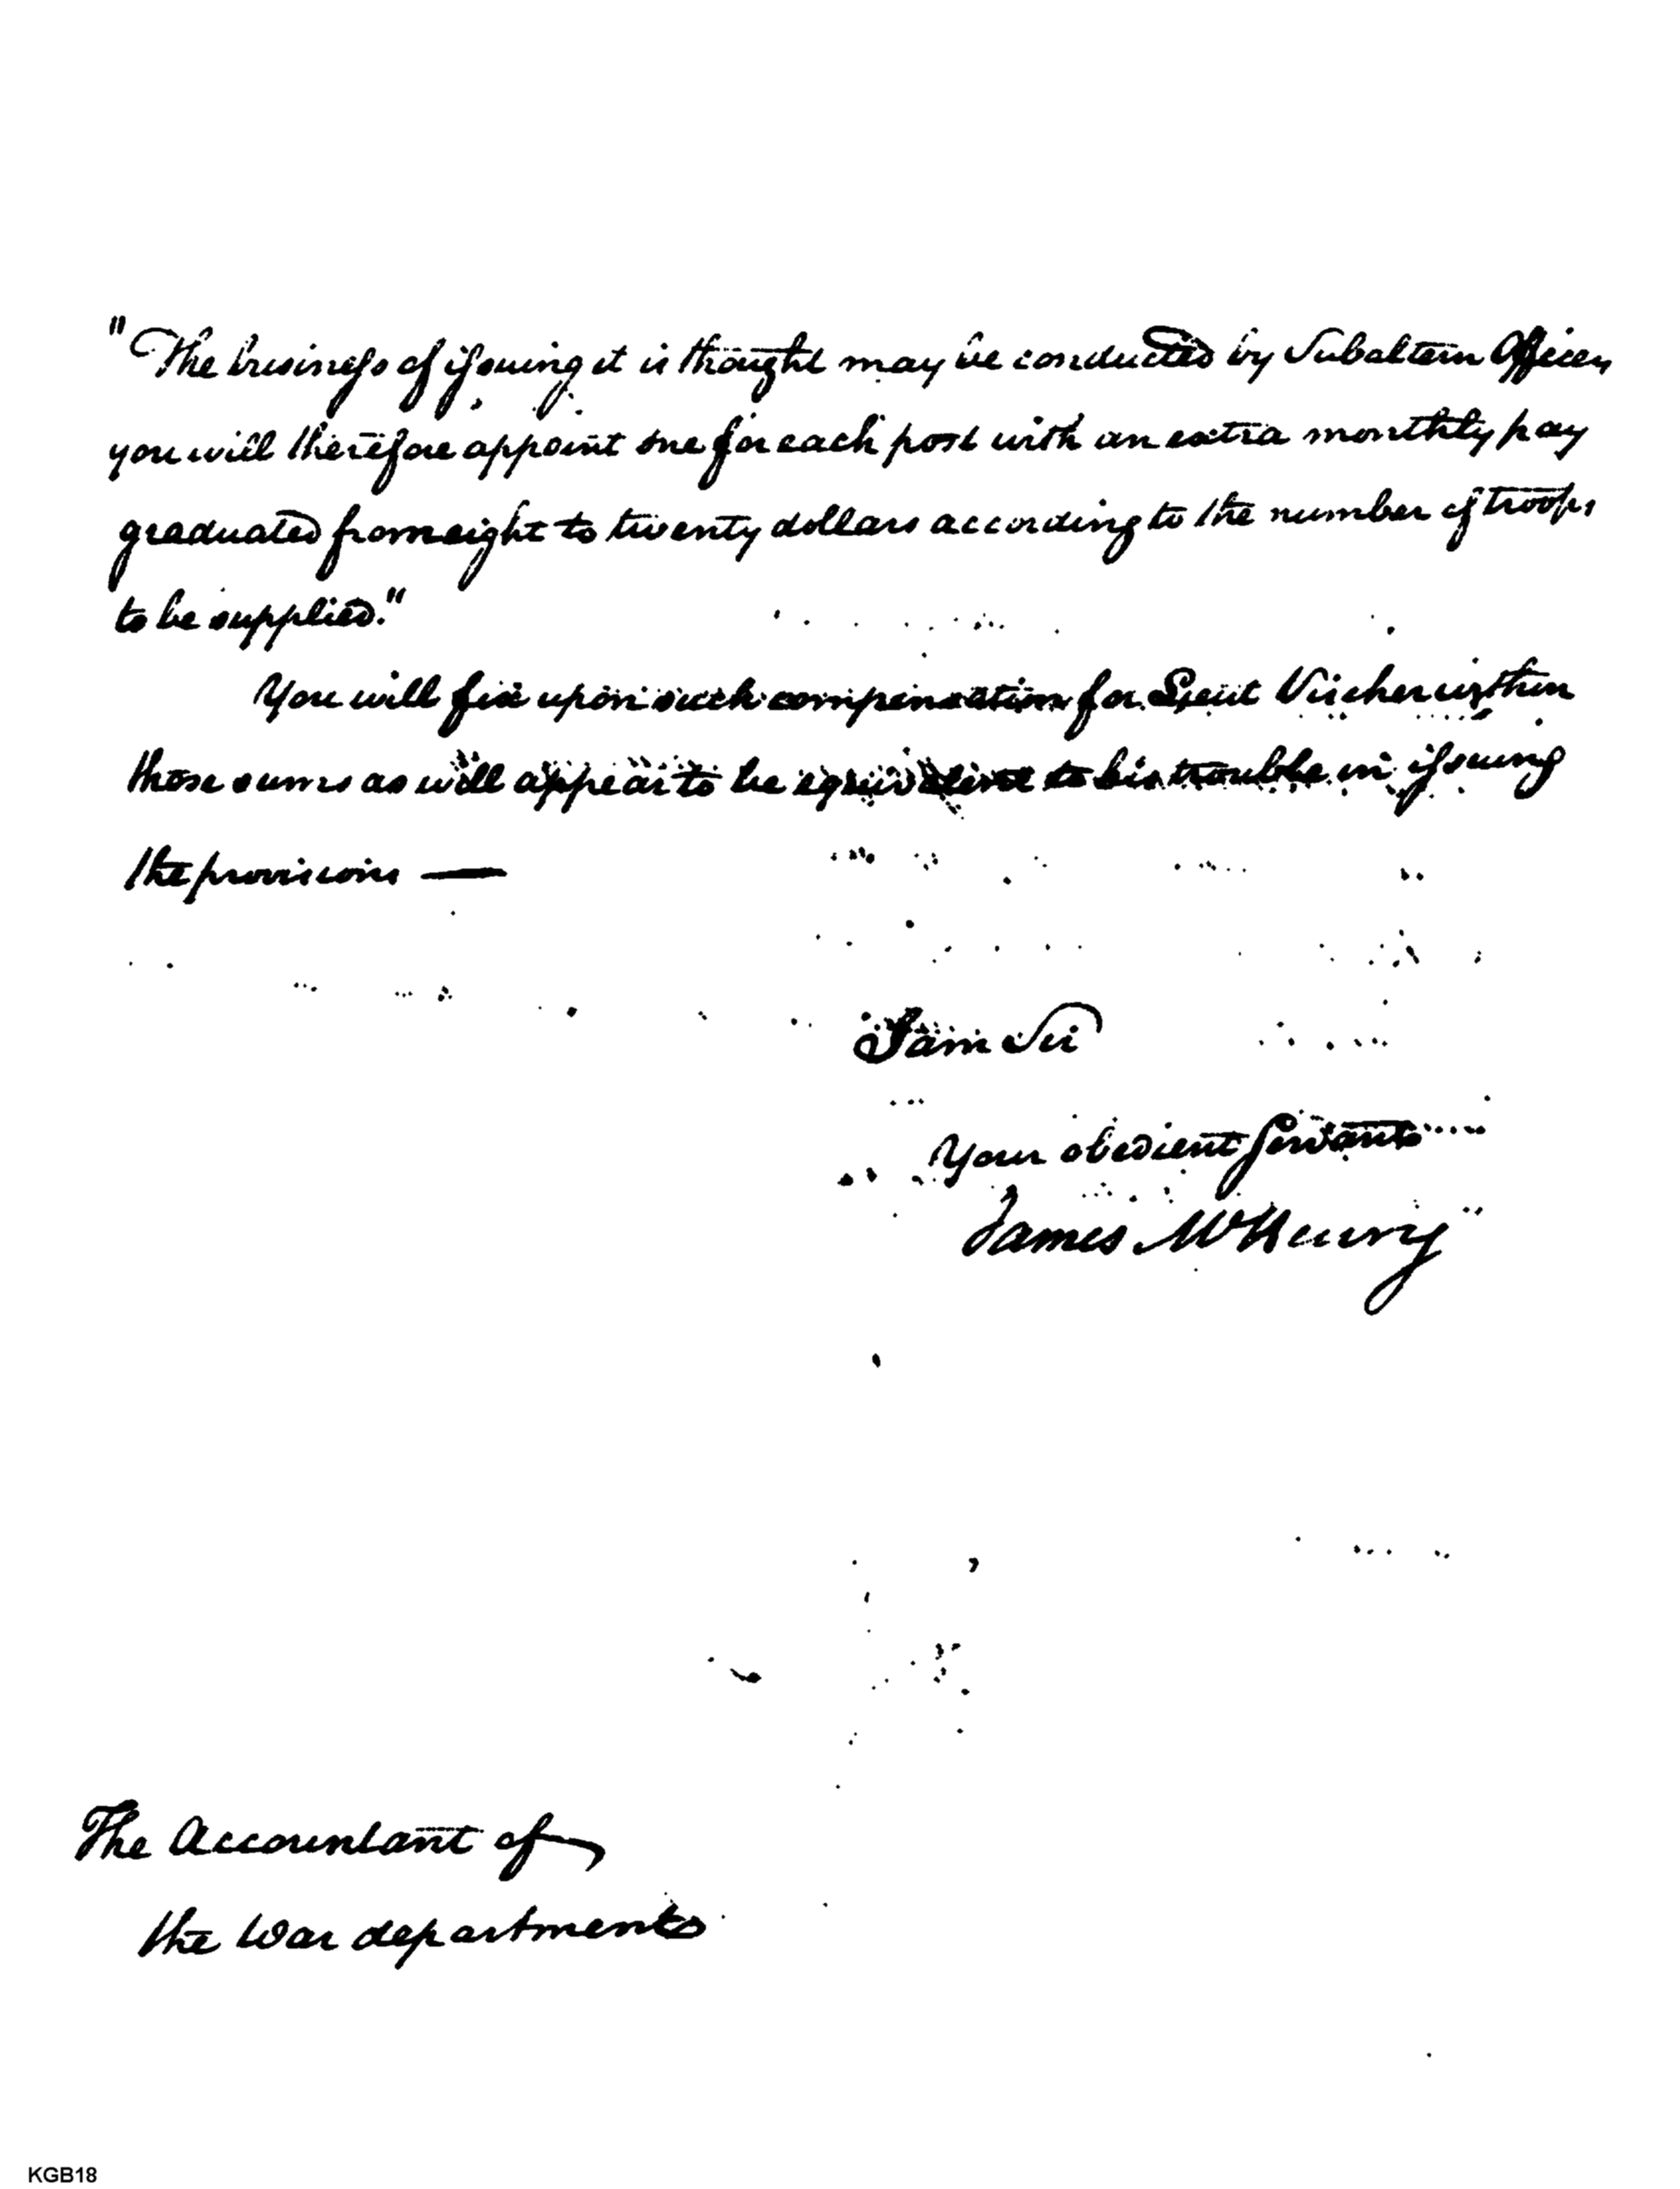 "The business of issuing it is thought may be conducted by Subaltern Officers
you will therefore appoint one for each post with an extra monthly pay
graduated from eight to twenty dollars according to the number of troops
to be supplied."
You will fix upon such compensation for Lieut Vischer within
those sums as will appear to be equivalent to his trouble in issuing
the provisions —
I am Sir
Your obedient Servant
James McHenry
The Accountant of
the War department
KGB18